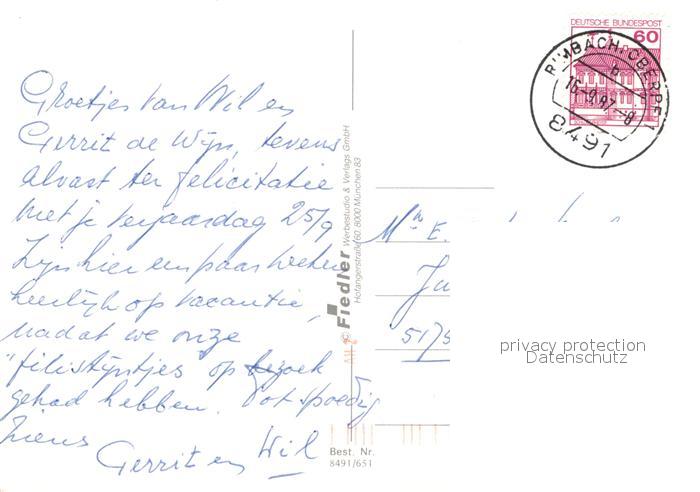 Groetjes van Wil en
Gerrit de Wijn, tevens
alvast ter felicitatie
met je verjaardag 25/9
Zijn hier een paar weken
heerlijk op vacantie,
nadat we onze
"filistijntjes" op bezoek
gehad hebben. Tot spoedig
ziens
Gerrit en Wil
© Fiedler Werbestudio & Verlags GmbH
Hofangerstraße 60, 8000 München 83
Best. Nr.
8491/651
DEUTSCHE BUNDESPOST
60
RIMBACH, OBERPF
b
16.-9.87.-8
8491
E.
5175
privacy protection
Datenschutz